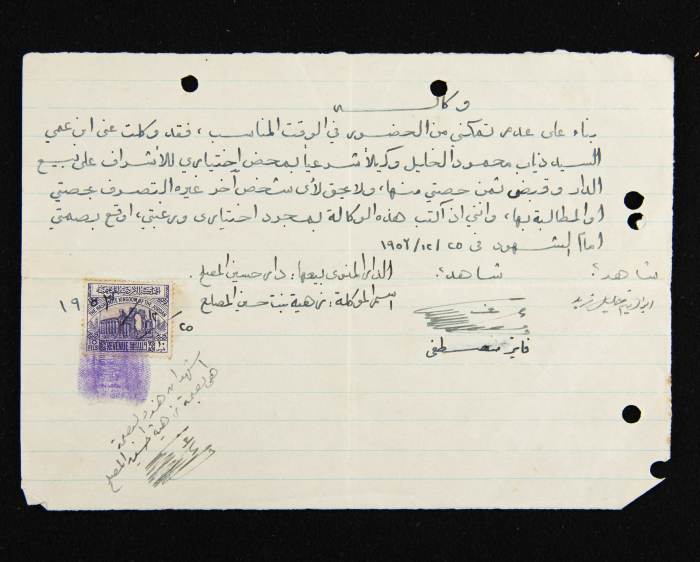 وكالة
بناء على عدم تمكني من الحضور في الوقت المناسب، فقد وكلت عني ابن عمي
السيد ذياب محمود الخليل وكيلاً شرعياً بمحض اختياري للأشراف على بيع
الدار وقبض ثمن حصتي منها، ولا يحق لأي شخص آخر غيره التصرف بحصتي
او المطالبة بها، وانني اذ اكتب هذه الوكالة بمجرد اختياري ورغبتي، اوقع بصمتي
امام الشهود في ٢٥/١٢/١٩٥٢
الدار المنوى بيعها: دار حسين المصلح. شاهد: شاهد:
اسم الموكلة: زهية بنت حسين المصلح
فايز مصطفى
١٩٥٢
١٢
٢٥
THE HASHEMITE KINGDOM OF THE JORDAN
REVENUE
FILS ١٠
اشهد ان هذه البصمة
هي بصمة زهية حسين المصلح